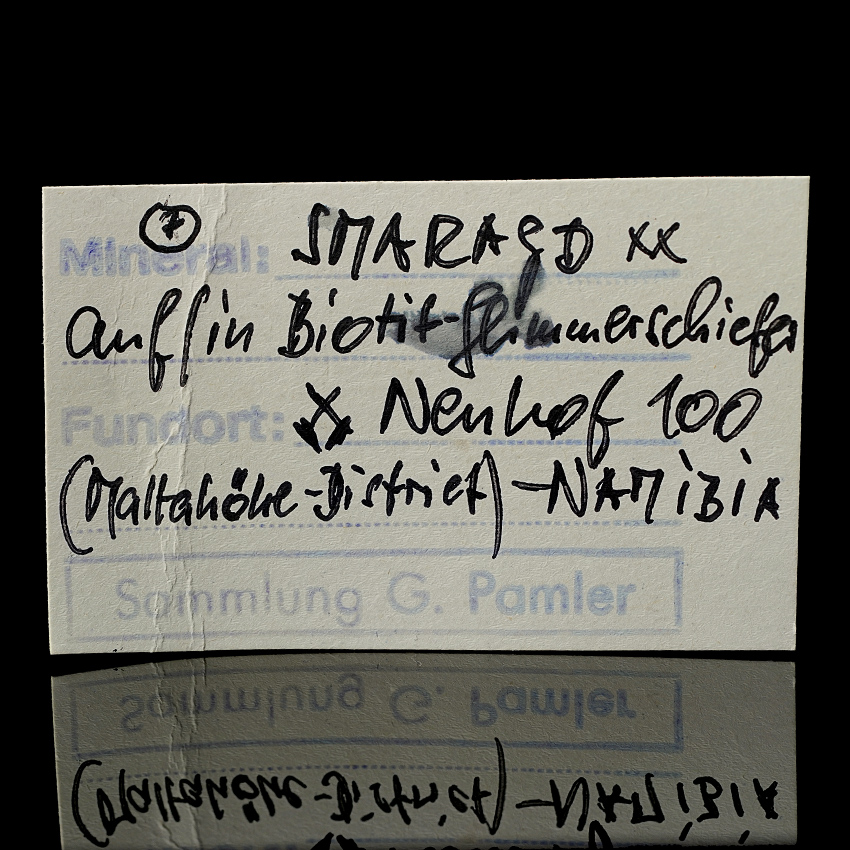 Mineral: SMARAGD xx
auf/in Biotit-Glimmerschiefer
Fundort: Neuhof 100
(Maltahöhe-District) - NAMiBiA
Sammlung G. Pamler